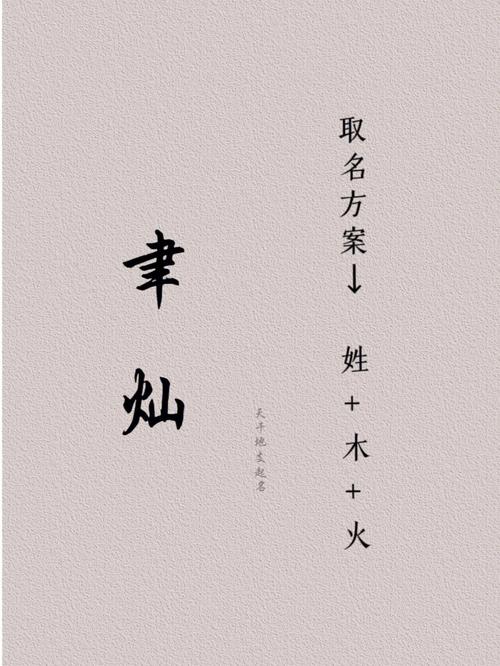 取名方案↓ 姓+木+火
天干地支起名
聿灿